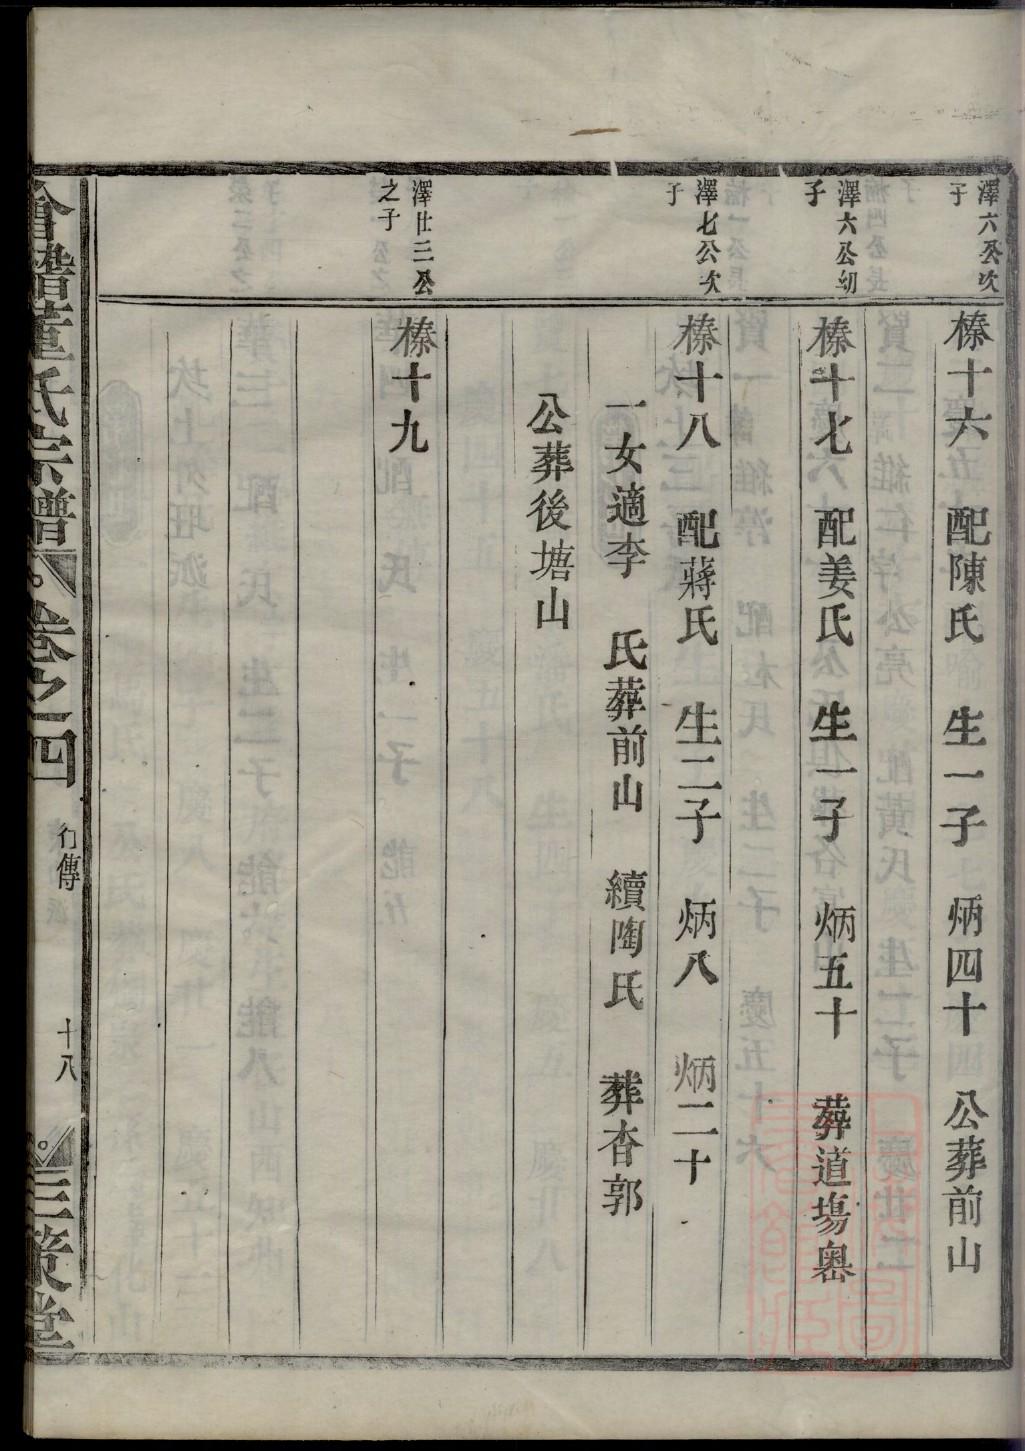 澤六公次
子
榛十六 配陳氏 生一子 炳四十 公葬前山
澤六公幼
子
榛十七 配姜氏 生一子 炳五十 葬道塲嶴
澤七公次
子
榛十八 配蔣氏 生二子 炳八 炳二十
一女適李 氏葬前山 續陶氏 葬杏郭
公葬後塘山
澤廿三公
之子
榛十九
會稽董氏宗譜 卷之四 行傳 十八 三策堂